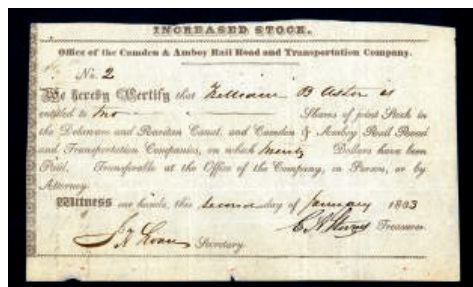 INCREASED STOCK.
Office of the Camden & Amboy Rail Road and Transportation Company.
No. 2
We hereby Certify that William B Astor is
entitled to two Shares of joint Stock in
the Delaware and Raritan Canal, and Camden & Amboy Rail Road
and Transportation Companies, on which twenty Dollars have been
Paid, Transferable at the Office of the Company, in Person, or by
Attorney.
Witness our hands, this second day of January 18
Secretary Treasurer